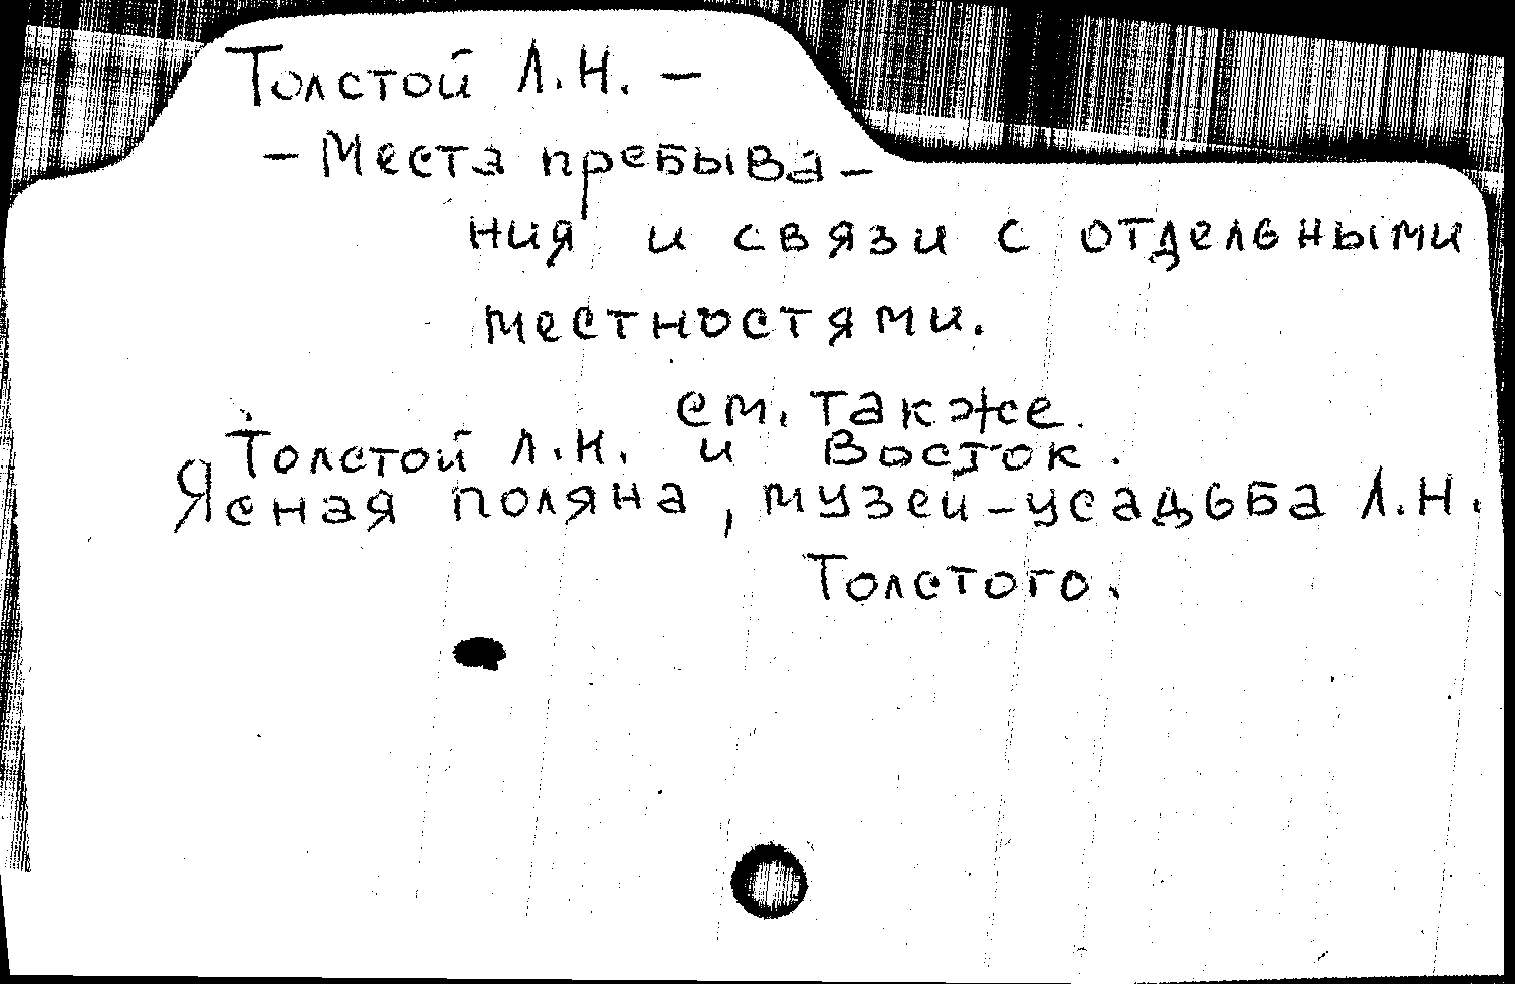 Толстой Л.Н. –
– Места пребыва-
ния и связи с отдельными
местностями.
см. также.
Толстой Л.Н. и Восток.
Ясная поляна, музей-усадьба Л.Н.
Толстого.